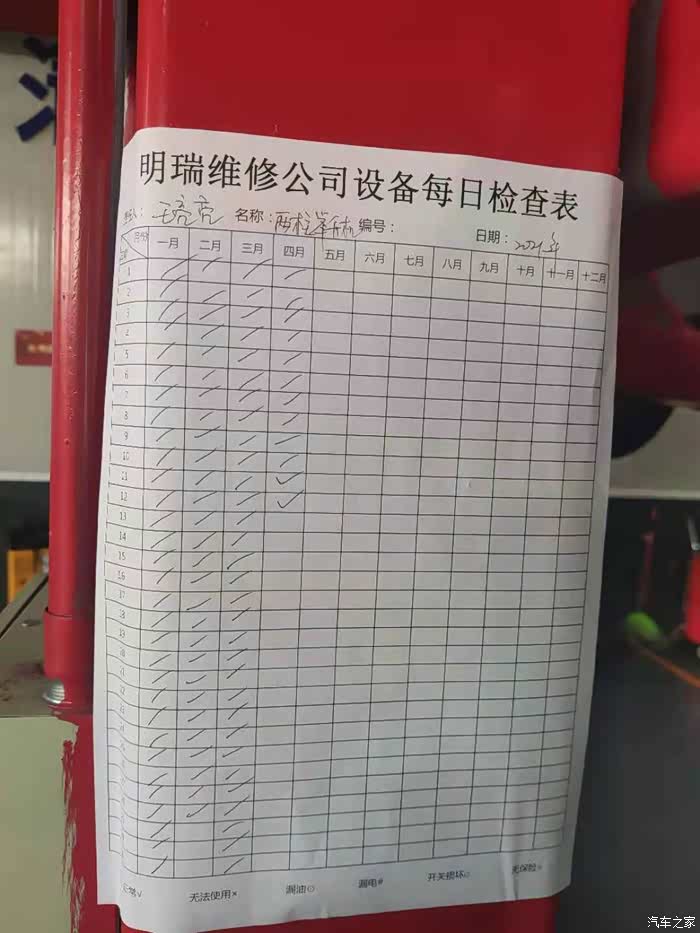 明瑞维修公司设备每日检查表
名称：两柱举升机 编号： 日期：2021年
月份 一月 二月 三月 四月 五月 六月 七月 八月 九月 十月 十一月 十二月
1
2
3
4
5
6
7
8
9
10
11
12
13
14
15
16
17
18
19
20
21
22
23
正常√ 无法使用× 漏油⊙ 漏电# 开关损坏 无保险
汽车之家